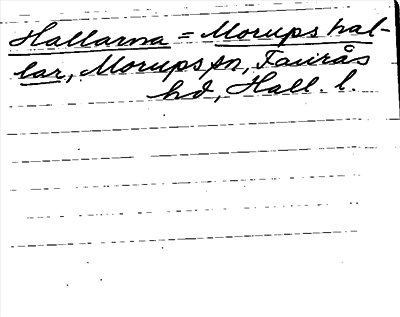 Hallarna = Morups hal-
lar, Morups sn, Faurås
hd, Hall. l.